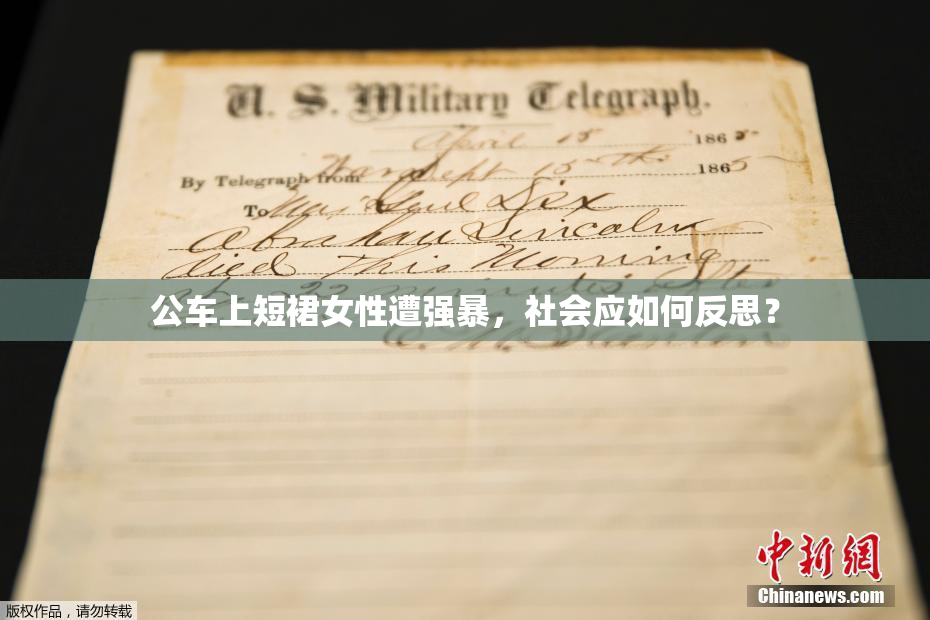 U. S. Military Telegraph.
April 15 1865
By Telegraph from War Dept 15th 1865
To Maj Genl Dix
Abraham Lincoln
died this Morning
at 22 minutes after
公车上短裙女性遭强暴，社会应如何反思？
E. M. Stanton
中新网
Chinanews.com
版权作品，请勿转载